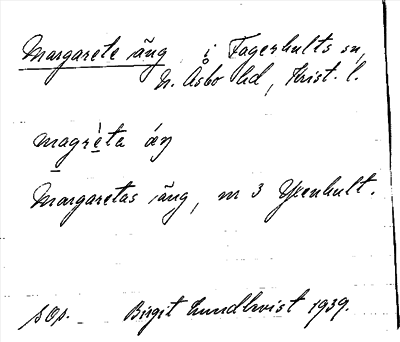 Margarete äng i Fagerhults sn,
N. Åsbo hd, Krist. l.
magrèta áŋ
Margaretas äng, m 3 Yxenhult.
sop. Birgit Lundkvist 1939.